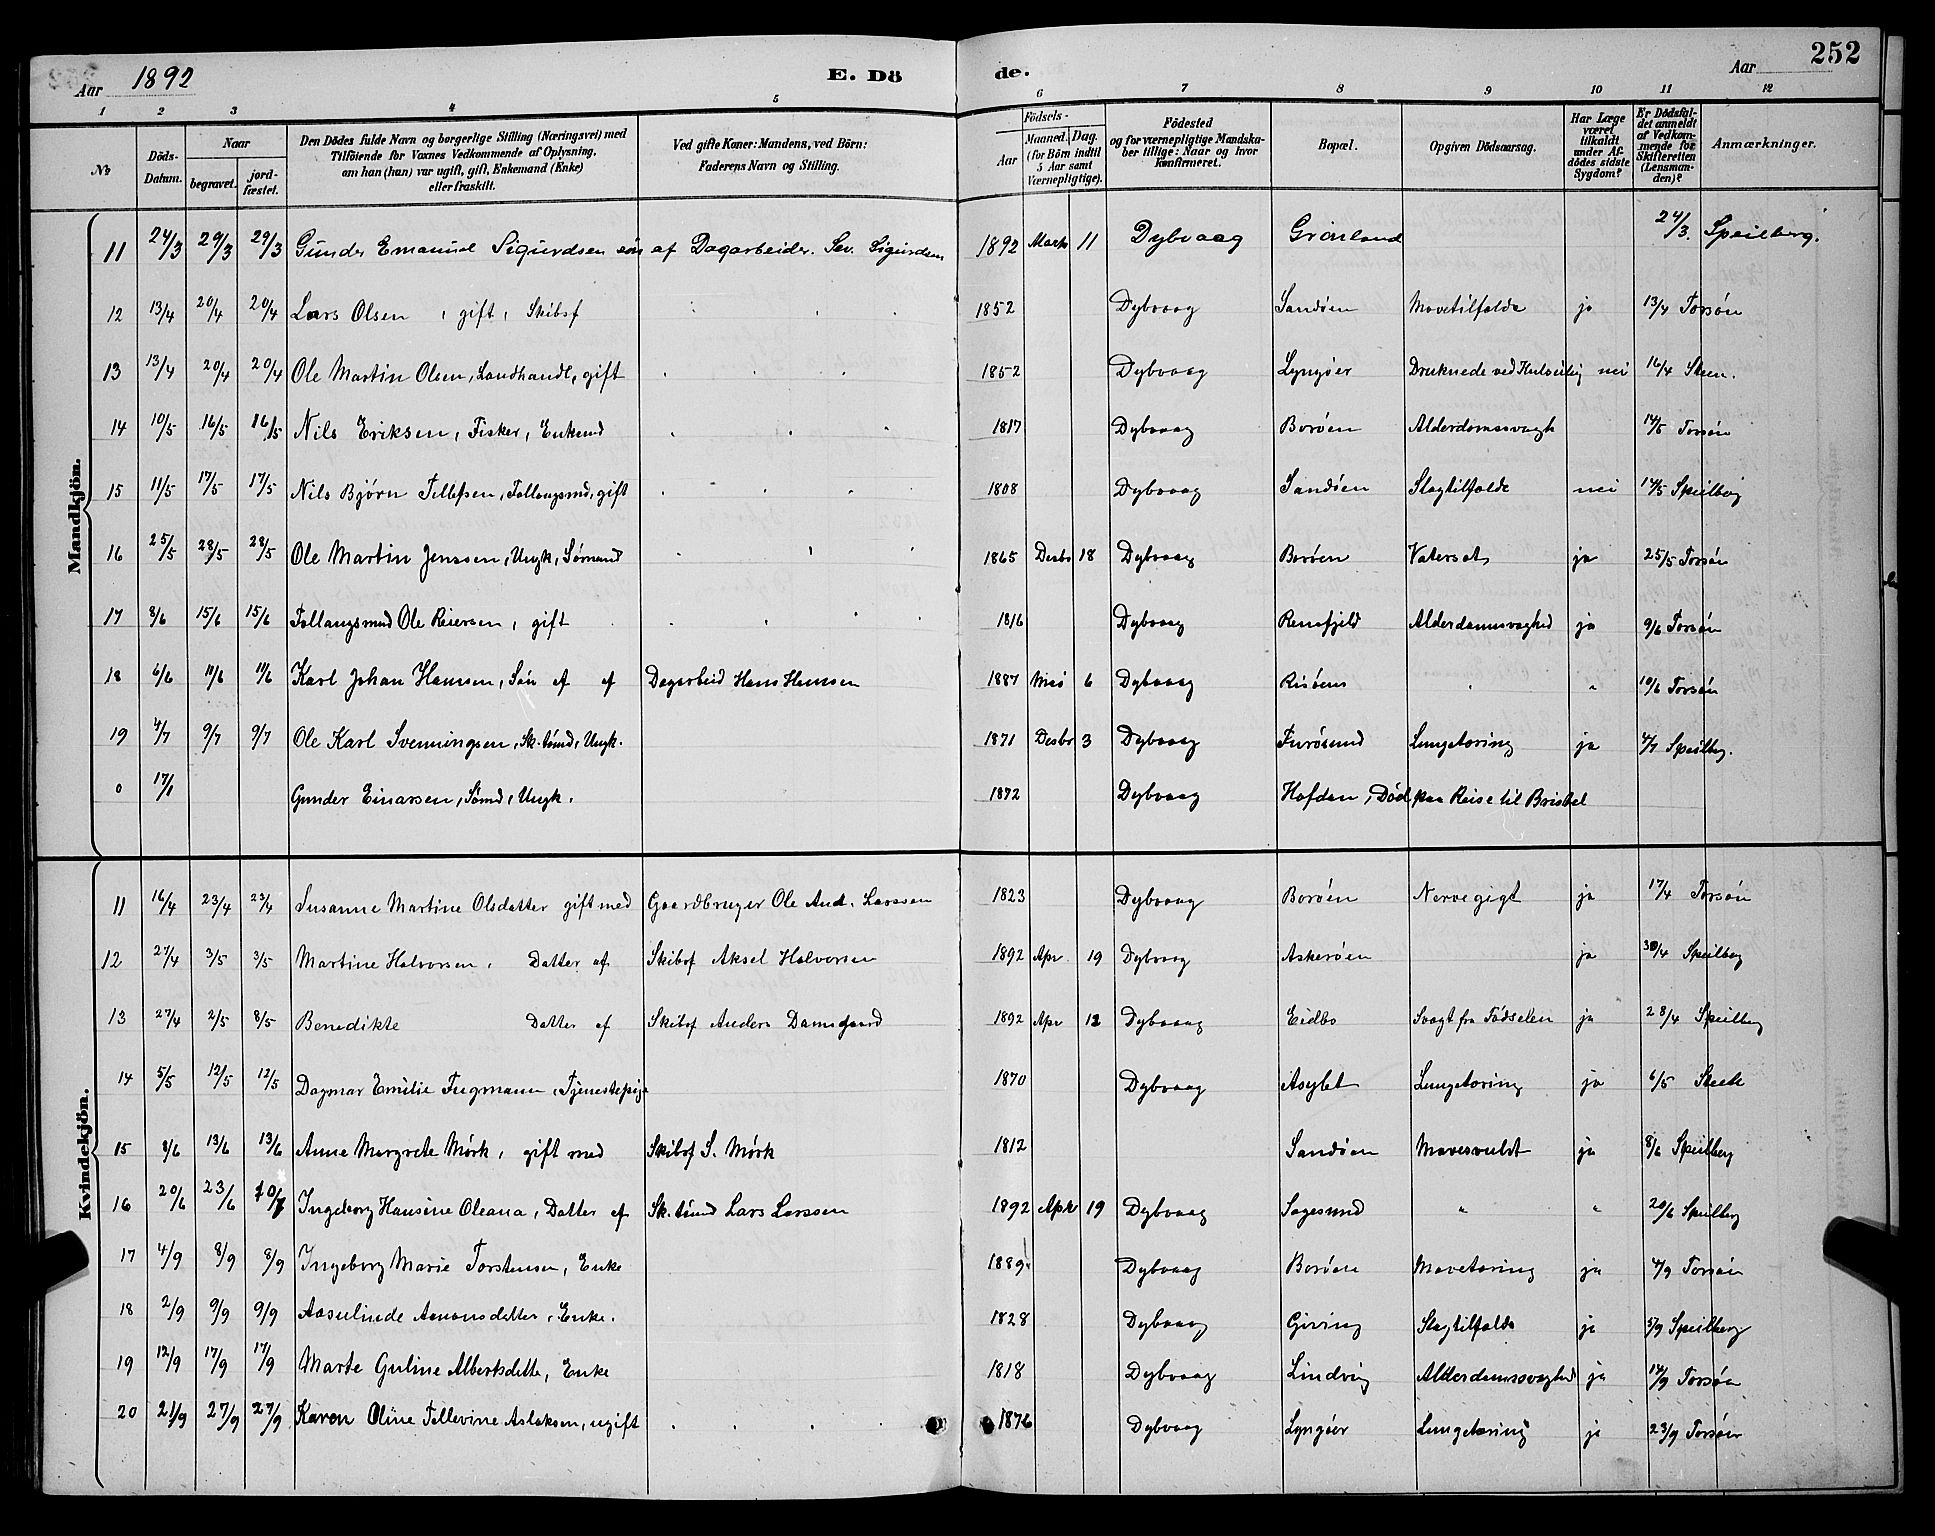 Aar 1892 E. Dö de. Aar 252
1 2 3 4 5 6 7 8 9 10 11 12
№ Döds-Datum. Naar begravet. jordfæstet. Den Dödes fulde Navn og borgerlige Stilling (Næringsvei) med Tilföiende for Voxnes Vedkommende af Oplysning, om han (hun) var ugift, gift, Enkemand (Enke) eller fraskilt. Ved gifte Koner: Mandens, ved Börn: Faderens Navn og Stilling. Födsels- Aar Maaned. Dag. (for Börn indtil 5 Aar samt Værnepligtige). Födested og for værnepligtige Mandskaber tillige: Naar og hvor konfirmeret. Bopæl. Opgiven Dödsaarsag. Har Læge været tilkaldt under Afdödes sidste Sygdom? Er Dödsfaldet anmeldt af Vedkommende for Skifteretten (Lensmanden)? Anmærkninger.
Mandkjön.
11 24/3 29/3 29/3 Gunder Emanuel Sigurdsen sön af Dagarbeider. Sev. Sigurdsen 1892 Marts 11 Dybvaag Grönland 24/3. Speilberg.
12 13/4 20/4 20/4 Lars Olsen, gift, Skibsf 1852 Dybvaag Sandøen Mavetilfælde ja 13/4 Torsøn
13 13/4 20/4 20/4 Ole Martin Olsen, Landhandl, gift 1852 Dybvaag Lyngøer Druknede ved nei 16/4 Steen.
14 10/5 16/5 16/5 Nils Eriksen, Fisker, Enkemd 1817 Dybvaag Borøen Alderdomssvagh 14/5 Torsøn
15 11/5 17/5 17/5 Nils Bjørn Tellefsen, Follaugsmd, gift 1808 Dybvaag Sandøen Slagtilfælde nei 14/5 Speilberg
16 25/5 28/5 28/5 Ole Martin Jenssen, Ungk, Sømand 1865 Desbr 18 Dybvaag Borøen Vatersot ja 25/5 Torsøn
17 8/6 15/6 15/6 Follaugsmnd Ole Reiersen, gift 1816 Dybvaag Rensfjeld Alderdomssvaghed ja 9/6 Torsøn
18 6/6 11/6 11/6 Karl Johan Hansen, Søn af af Dagarbeid Hans Hansen 1887 Mai 6 Dybvaag Risøen " " 10/6 Torsøn
19 4/7 9/7 9/7 Ole Karl Svenningsen, Sk. tømd, Ungk. 1871 Desbr 3 Dybvaag Furøsund Lungetæring ja 4/7 Speilberg.
0 17/1 Gunder Einarsen, Sømd, Ungk. 1872 Dybvaag Hafdan, Død paa Reise til Bristol
Kvindekjön.
11 16/4 23/4 23/4 Susanne Martine Olsdatter gift med Gaardbruger Ole And. Larssen 1823 Dybvaag Borøen Nervegigt ja 17/4 Torsøn
12 27/4 3/5 3/5 Martine Halvorsen, Datter af Skibsf Aksel Halvorsen 1892 Apr 19 Dybvaag Askerøen ja 30/4 Speilberg
13 27/4 2/5 8/5 Benedikte Datter af Skibsf Anders Damsgaard 1892 Apr 12 Dybvaag Eidbo Svagt fra Fødselen ja 28/4 Speilberg
14 5/5 12/5 12/5 Dagmar Emilie Fugmann, Tjenestepige 1870 Dybvaag Asylet Lungetæring ja 6/5
15 8/6 13/6 13/6 Anne Margrete Mørk, gift med Skibsf S. Mørk 1812 Sandøen Mavesvulst ja 8/6 Speilberg
16 20/6 23/6 10/7 Ingeborg Hansine Oleana, Datter af Sk. tømd Lars Larssen 1892 Apr 19 Dybvaag Sagesund " " 20/6 Speilberg
17 4/9 8/9 8/9 Ingeborg Marie Torstensen, Enke 1889 Dybvaag Borøen Mavetæring ja 4/9 Torsøn
18 2/9 9/9 9/9 Aasulinede Aanonsdatter, Enke. 1828 Dybvaag Giving Slagtilfælde ja 5/9 Speilberg
19 12/9 17/9 17/9 Marte Guline Albertsdatte, Enke 1818 Dybvaag Lindvig Alderdomssvaghed ja 14/9 Torsøn
20 21/9 27/9 27/9 Karen Oline Tellevine Aslaksen, ugift 1876 Dybvaag Lyngøer Lungetæring ja 23/9 Torsøn